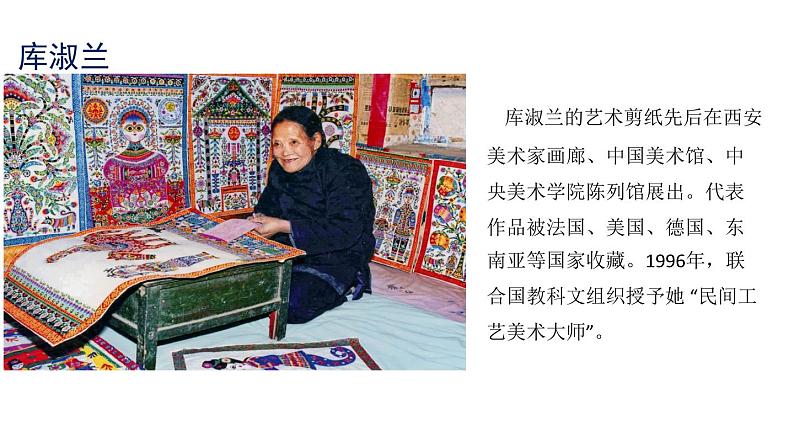 库淑兰
库淑兰的艺术剪纸先后在西安
美术家画廊、中国美术馆、中
央美术学院陈列馆展出。代表
作品被法国、美国、德国、东
南亚等国家收藏。1996年，联
合国教科文组织授予她 “民间工
艺美术大师”。